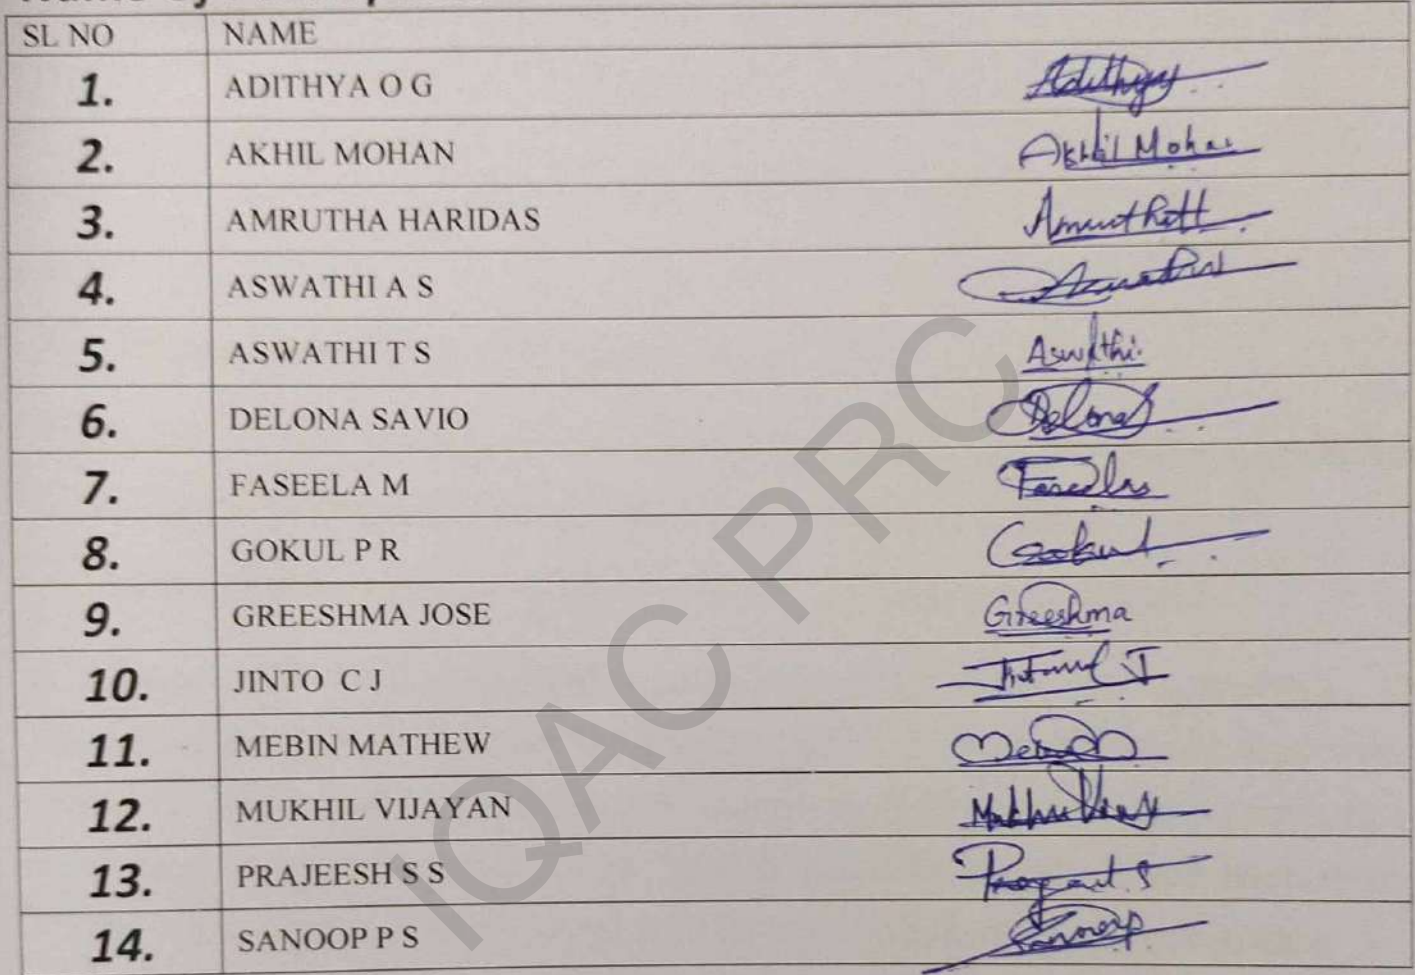 SL NO NAME
1. ADITHYA O G Adithya
2. AKHIL MOHAN Akhil Mohan
3. AMRUTHA HARIDAS
4. ASWATHI A S
5. ASWATHI T S Aswathi
6. DELONA SAVIO Delona
7. FASEELA M Faseela
8. GOKUL P R Gokul
9. GREESHMA JOSE Greeshma
10. JINTO C J
11. MEBIN MATHEW
12. MUKHIL VIJAYAN
13. PRAJEESH S S
14. SANOOP P S Sanoop
IQAC PRC